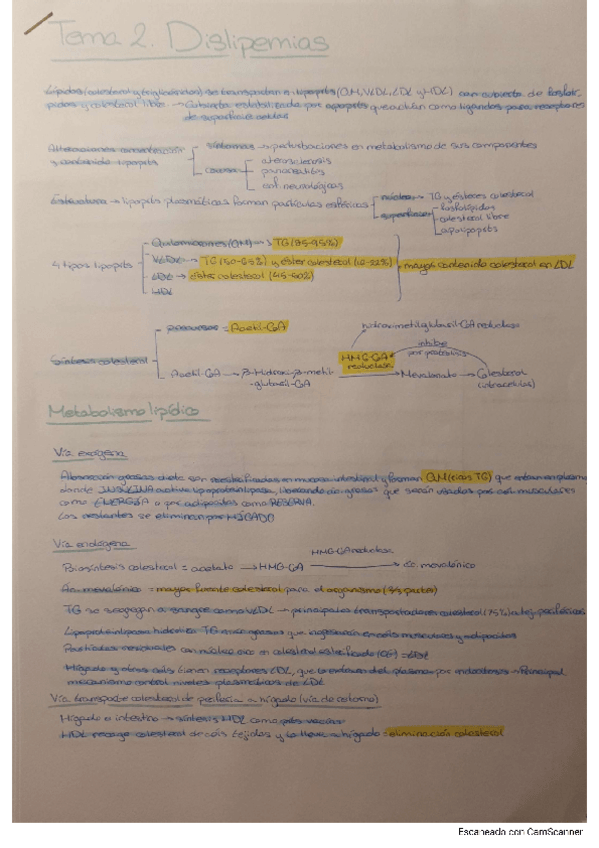 Tema 2. Dislipemias
Lípidos (colesterol y triglicéridos) se transportan en lipoprots (QM, VLDL, LDL y HDL) con cubierta de fosfolí-
pidos y colesterol libre. → Cubierta estabilizada por apoprots que actúan como ligandos para receptores
de superficie celular
Alteraciones concentración y contenido lipoprots
síntomas → perturbaciones en metabolismo de sus componentes
causas
aterosclerosis
pancreatitis
enf neurológicas
Estructura → lipoprots plasmáticas forman partículas esféricas
núcleo → TG y ésteres colesterol
superficie
fosfolípidos
colesterol libre
apolipoprots
4 tipos lipoprots
Quilomicrones (QM) → TG (85-95%)
VLDL → TG (50-65%) y éster colesterol (16-22%)
LDL → éster colesterol (45-60%)
HDL
mayor contenido colesterol en LDL
Síntesis colesterol
precursor = Acetil-CoA
hidroximetilglutaril-CoA reductasa
Acetil-CoA → β-Hidroxi-β-metil-
glutaril-CoA
HMG-CoA
reductasa
inhibe
Mevalonato → Colesterol
(intracelular)
Metabolismo lipídico
Vía exógena
Absorción grasas dieta son reesterificadas en mucosa intestinal y forman QM (ricos TG) que entran en plasma
donde INSULINA activa lipoproteinlipasa, liberando ác. grasos que serán usados por céls musculares
como ENERGÍA o por adipocitos como RESERVA.
Los restantes se eliminan por HÍGADO
Vía endógena
Biosíntesis colesterol = acetato → HMG-CoA
HMG-CoA reductasa
ác. mevalónico
Ác. mevalónico = mayor fuente colesterol para el organismo (3/4 partes)
TG se segregan a sangre como VLDL → principales transportadores colesterol (75%) a tej. periféricos
Lipoproteinlipasa hidroliza TG a ác. grasos que ingresarán en céls musculares y adipocitos
Partículas residuales con núcleo rico en colesterol esterificado (CE) = LDL
Hígado y otras céls tienen receptores LDL, que la extraen del plasma por endocitosis → Principal
mecanismo control niveles plasmáticos de LDL
Vía transporte colesterol de periferia a hígado (vía de retorno)
Hígado e intestino → síntesis HDL como
HDL recoge colesterol de céls tejidos y lo lleva a hígado = eliminación colesterol
Escaneado con CamScanner